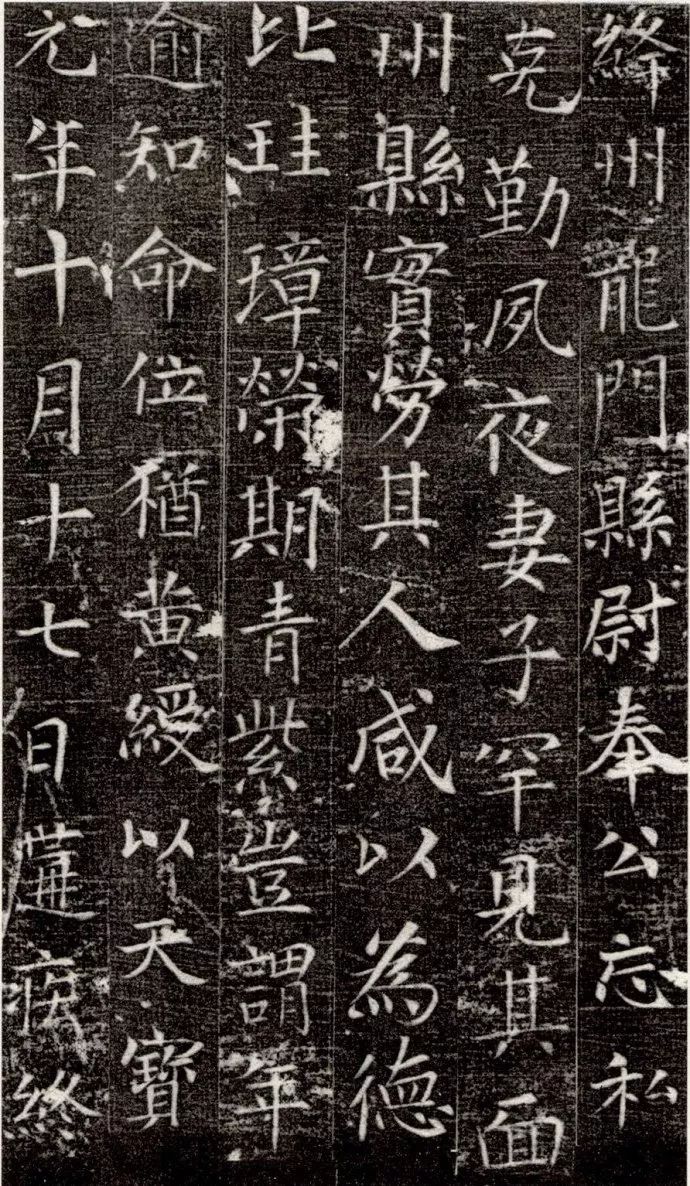 絳州龍門縣尉奉公忘私
克勤夙夜妻子罕見其面
州縣實勞其人咸以為德
比珪璋榮期青紫豈謂年
逾知命位猶黄綬以天寶
元年十月十七日遘疾終